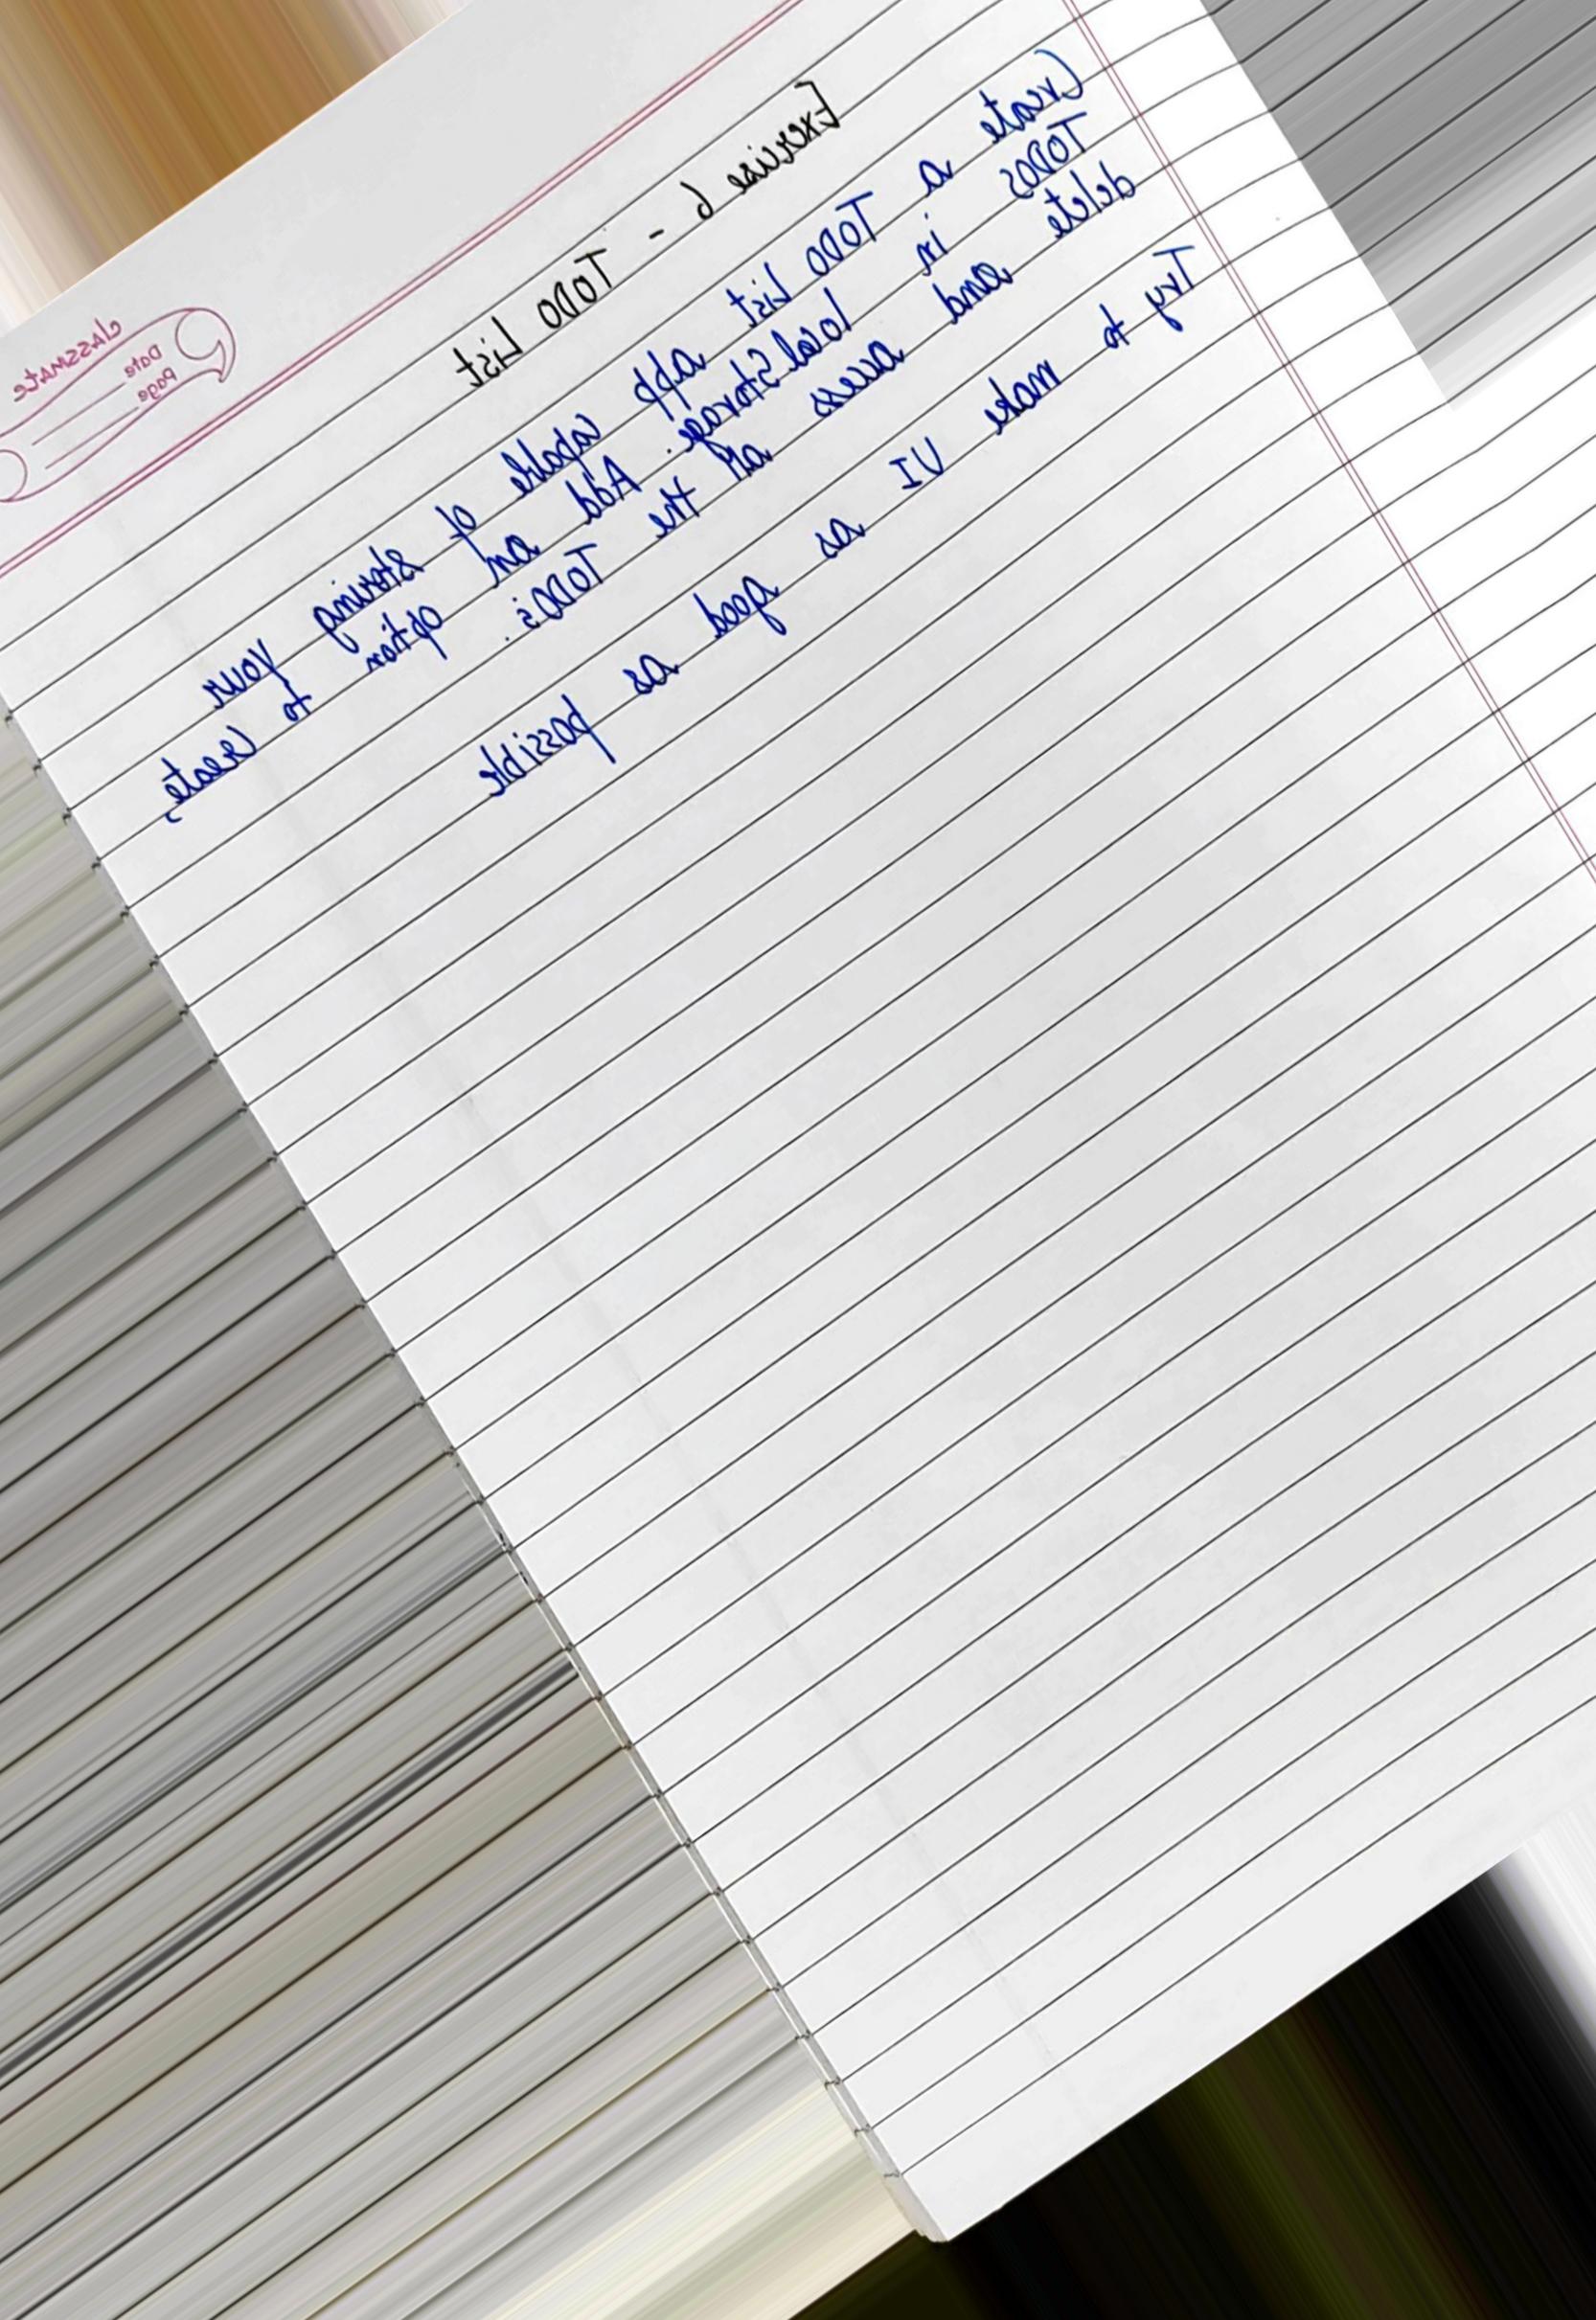 classmate
Date
Page
Exercise 6 - TODO List
Create a TODO List app capable of storing your
TODOS in localStorage. Add an option to create,
delete and access all the TODOs.
Try to make UI as good as possible